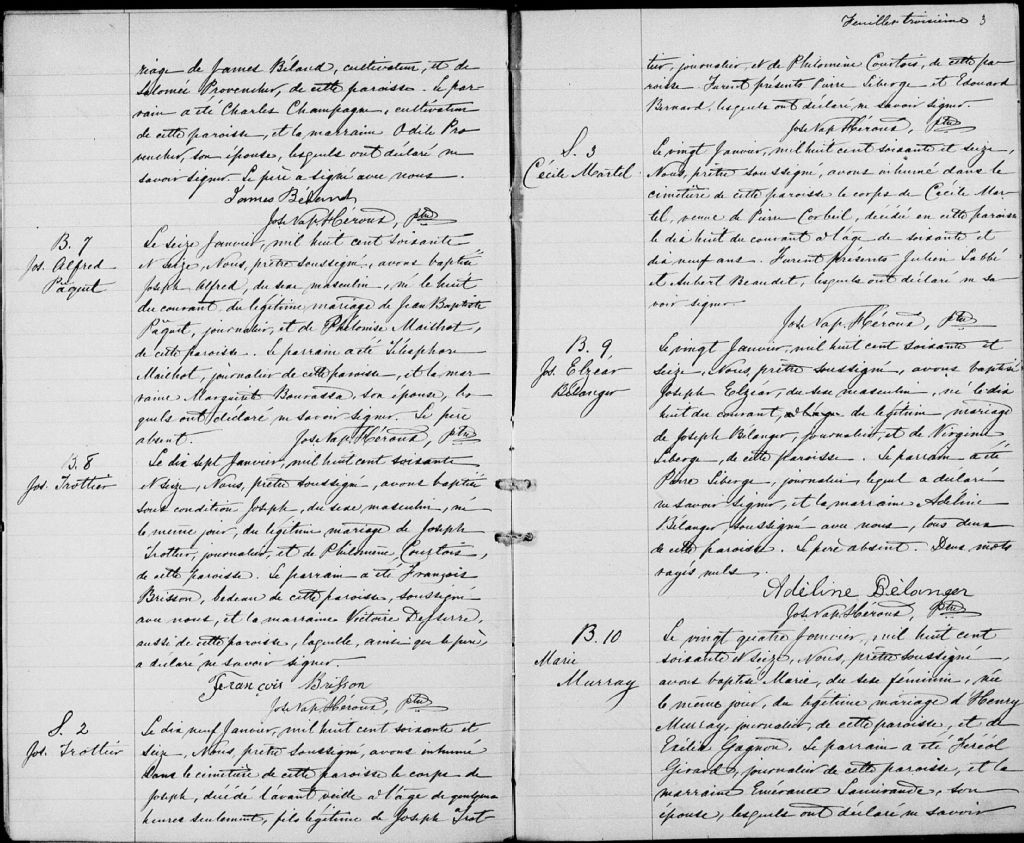 riage de James Béland, cultivateur, et de
Salomée Provencher, de cette paroisse. Le par-
rain a été Charles Champagne, cultivateur
de cette paroisse, et la marraine Odile Pro
vencher, son épouse, lesquels ont déclaré ne
savoir signer. Le père a signé avec nous.
James Béland
Jos. Nap. Héroux, Ptre
B. 7
Jos. Alfred
Pâquet
Le seize Janvier, mil huit cent soixante
et seize, Nous, prêtre soussigné, avons baptisé
Joseph Alfred, du sexe masculin, né le huit
du courant, du légitime mariage de Jean Baptiste
Pâquet, journalier, et de Philonise Mailhot,
de cette paroisse. Le parrain a été Télesphore
Maichot, journalier de cette paroisse, et la mar
raine Marguerite Bouvassa son épouse, les
quels ont déclaré ne savoir signer. Le père
absent. Jos. Nap. Héroux, Ptre
B. 8
Jos. Trottier
Le dix sept Janvier, mil huit cent soixante
et seize, Nous, prêtre soussigné, avons baptisé
sous condition Joseph, du sexe masculin, né
le même jour, du légitime mariage de Joseph
Trottier, journalier, et de Philomène Courtois,
de cette paroisse. Le parrain a été François
Brisson, bedeau de cette paroisse, soussigné
avec nous, et la marraine Victoire Deserre,
aussi de cette paroisse, laquelle, ainsi que le père,
a déclaré ne savoir signer.
Francois Brisson
Jos. Nap. Héroux, Ptre
S. 2
Jos. Trottier
Le dix neuf Janvier, mil huit cent soixante et
seize, Nous, prêtre soussigné, avons inhumé
dans le cimetière de cette paroisse le corps de
Joseph, décédé l'avant veille à l'âge de quelques
heures seulement, fils légitime de Joseph Trot
Feuillet troisième 3
tier, journalier, et de Philomène Courtois, de cette pa-
roisse. Furent présents Pierre Leberge et Edouard
Bernard, lesquels ont déclaré ne savoir signer.
Jos. Nap. Héroux, Ptre
S. 3
Cécile Martel
Le vingt Janvier, mil huit cent soixante et seize,
Nous, prêtre soussigné, avons inhumé dans le
cimetière de cette paroisse le corps de Cécile Mar-
tel, veuve de Pierre Corbeil, décédée en cette paroisse
le dix huit du courant à l'âge de soixante et
dix neuf ans. Furent présents Julien Labbé
et Aubert Beaudet, lesquels ont déclaré ne sa
voir signer.
Jos. Nap. Héroux, Ptre
B. 9,
Jos. Elzéar
Bélanger
Le vingt Janvier, mil huit cent soixante et
seize, Nous, prêtre soussigné, avons baptisé
Joseph Elzéar, du sexe masculin, né le dix
huit du courant, du légitime mariage
de Joseph Bélanger, journalier, et de Virginie
Leberge, de cette paroisse. Le parrain a été
Pierre Leberge, journalier, lequel a déclaré
ne savoir signer, et la marraine Adéline
Bélanger, soussigné avec nous, tous deux
de cette paroisse. Le père absent. Deux mots
rayés nuls.
Adéline Bélanger
Jos. Nap. Héroux, Ptre
B. 10
Marie
Murray
Le vingt quatre Janvier, mil huit cent
soixante et seize, Nous, prêtre soussigné,
avons baptisé Marie, du sexe féminin, née
le même jour, du légitime mariage d'Henry
Murray, journalier, de cette paroisse, et de
Exilia Gagnon. Le parrain a été Féréol
Girard, journalier de cette paroisse, et la
marraine Emérance Lamirande, son
épouse, lesquels ont déclaré ne savoir